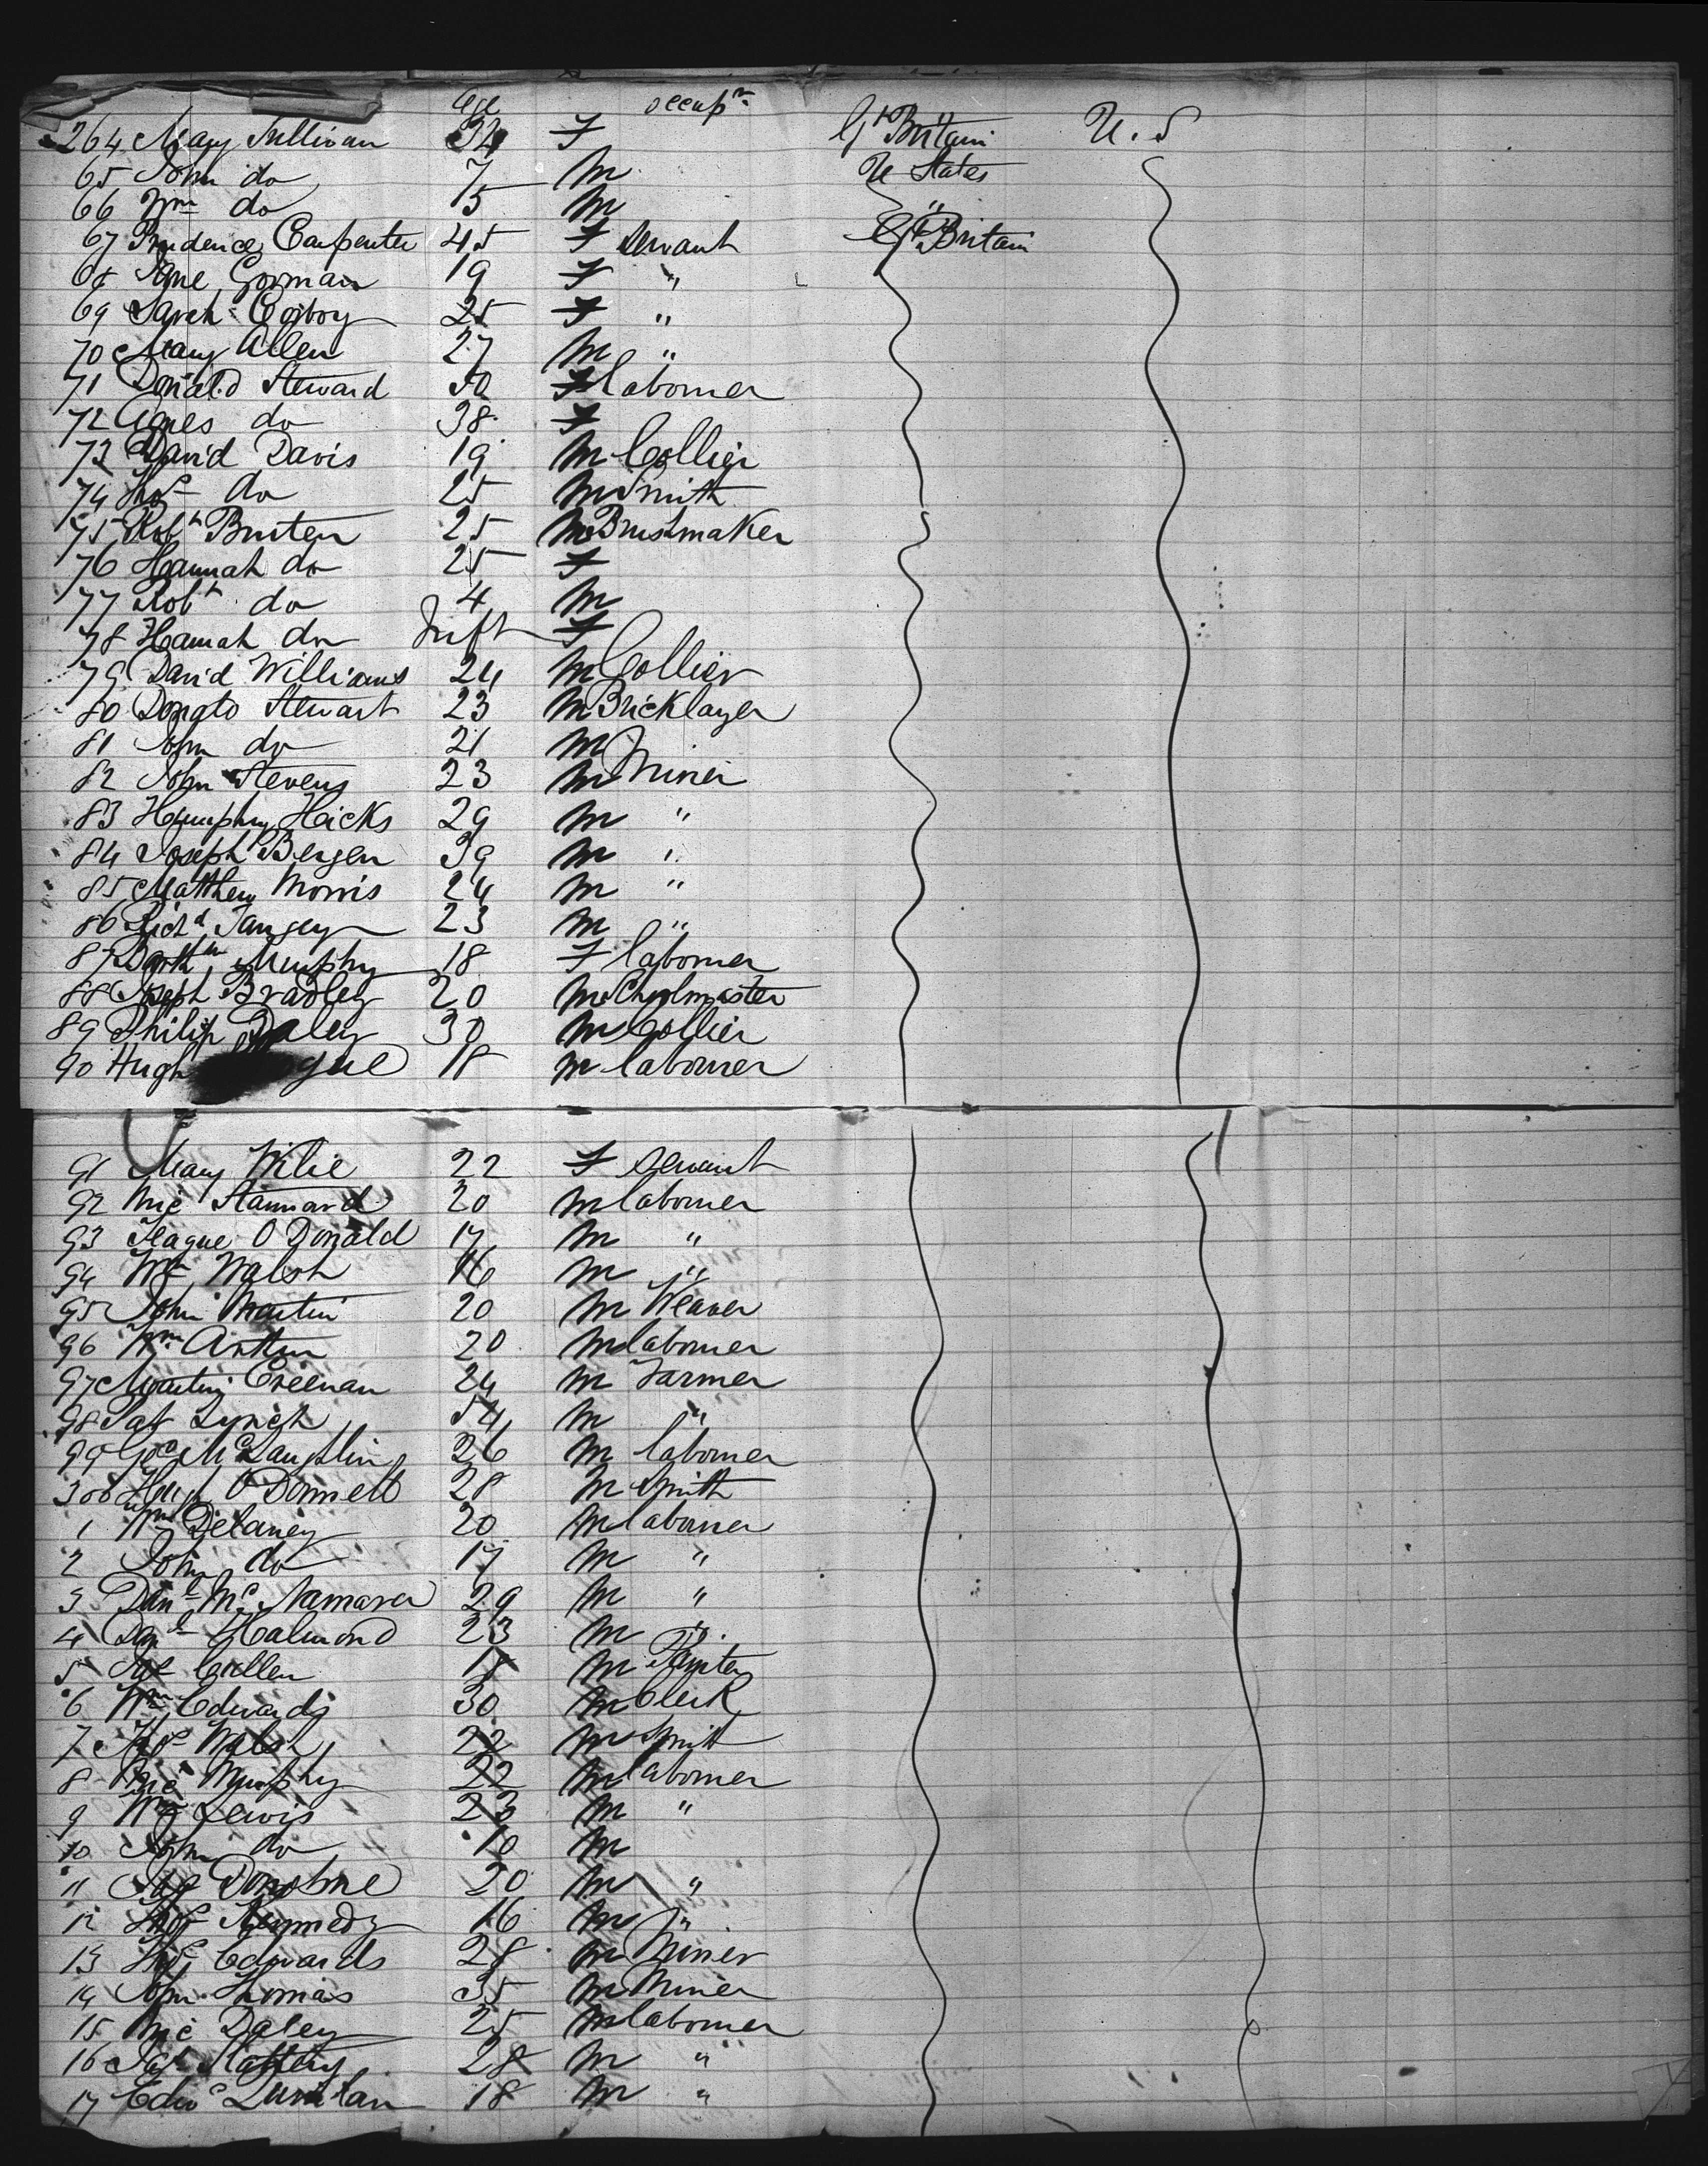 Age occupn
264 Mary Sullivan 32 F Gt Britain U.S
65 John do 7 M U States
66 Wm do 5 M "
67 Prudence Carpenter 45 F servant Gt Britain
68 Jane Gorman 19 F "
69 Sarah 25 F "
70 Mary Allen 27 M "
71 Donald Steward 50 F laborner
72 Agnes do 38 F
73 David Davis 19 M Collier
74 Thos do 25 M Smith
75 Robt Burten 25 M Brushmaker
76 Hannah do 25 F
77 Robt do 4 M
78 Hannah do Inft F
79 David Williams 24 M Collier
80 Donato Stewart 23 M Bricklayer
81 John do 21 M
82 John Stevens 23 M Miner
83 Humphry Hicks 29 M "
84 Joseph Bergen 39 M "
85 Matthew Morris 24 M "
86 Richd Tangey 23 M "
87 Barthw Murphy 18 F laborner
88 Joseph Bradley 20 M
89 Philip Daley 30 M Collier
90 Hugh gue 18 M laborner
91 Mary Wilie 22 F servant
92 Mic Stannard 20 M laborner
93 Teague O Donald 17 M "
94 Walsh 16 M "
95 John Martin 20 M Weaver
96 Wm Arthur 20 M laborner
97 Martin Greenan 24 M Farmer
98 Pat Lynch 54 M "
99 Geo McLaughlin 26 M laborner
300 Hugh O'Donnell 28 M Smith
1 Wm Delaney 20 M laborner
2 John do 17 M "
3 Danl McNamara 29 M "
4 Danl Halmond 23 M "
5 Cullen 18 M Painter
6 Wm Edwards 30 M Clerk
7 Thos Walsh 22 M Smith
8 Mic Murphy 22 M laborner
9 Wm Lewis 23 M "
10 John do 10 M
11 Jas Donohue 20 M "
12 Thos Kennedy 16 M "
13 Thos Edwards 28 M Miner
14 John Thomas 35 M Miner
15 Mic Daley 25 M laborner
16 Slattery 28 M "
17 Edwd Quinlan 18 M "